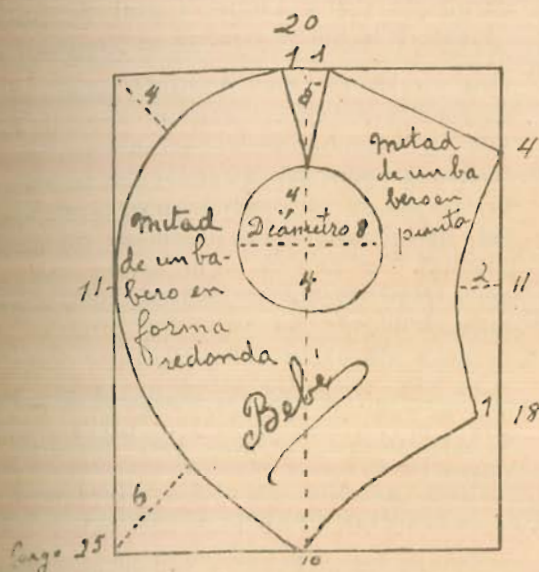 20
1 1
4
5
4
Metad
de un ba
bero en
punta
4
Diámetro 8
Metad
de un ba-
bero en
forma
redonda
11
4
2
11
Bebé
1
18
6
Largo 25
10